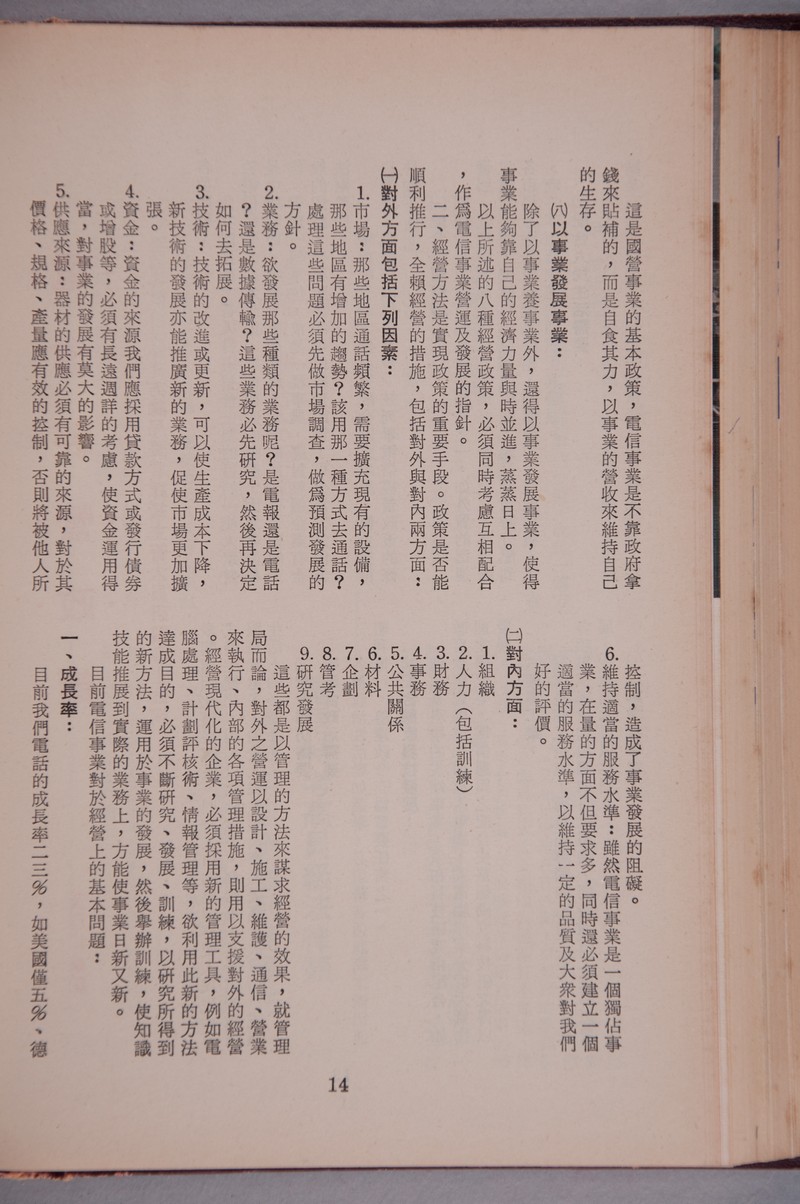 這是國營事業的基本政策，電信事業是不靠政府拿
錢來貼補的，而是自食其力，以事業的營收來維持自己
的生存。
㈧以事業發展事業：
除了以事業養事業外，還得以事業發展事業，使得
事業能夠靠自己的經濟力量與時並進，蒸蒸日上。
以上所述的八種經營政策，必須同時考慮互相配合
，作爲電信事業營運及發展的指針。
二、經營方法是實現政策的重要手段。政策是否能
順利推行，全賴經營的措施，包括對外與對內兩方面：
㈠對外方面包括下列因素：
1.市場：那些地區通話頻繁，需要擴充現有的設備，
那些地區有增加的趨勢？該用那一種方式去通話？
處理這些問題必須先做市場調查，做爲預測發展的
方針。
2.業務：欲發展那些種類的業務呢？是電報還是電話
？還是數據傳輸？這些業務必先研究，然後再決定
如何去拓展。
3.技術：技術的改進或更新，可以使生產成本下降，
新技術的發展亦能推廣新的業務，促使市場更加擴
張。
4.資金：資金的來源我們應採用貸款方式或發行債券
或增股等，必須有長遠週詳的考慮，使資金運用得
當，對事業的發展有莫大的影響。
5.供應來源：器材的供應必須有可靠的來源，對於其
價格、規格、產量應有效的控制，否則將被他人所
控制，造成了事業發展的阻礙。
6.維持適當的服務水準：雖然電信事業是一個獨佔事
業，在量的方面不但要求多，同時還必須建立一個
適當的服務水準，以維持一定的品質及大衆對我們
好的評價。
㈡對內方面：
1.組織
2.人力（包括訓練）
3.財務
4.事務
5.公共關係
6.材料
7.企劃
8.管考
9.研究發展
這些都是以管理的方法來謀求經營的效果，就管理
局而論，對外之營運以設計、施工、維護、通信、營業
來執行、內部的各項管理措施，則用以支援對外的經營
。經營現代化的企業，必須採用新的管理工具，例如電
腦處理、計劃評核術、情報管理等，欲利用此新的方法
達成目的，必須不斷研究、發展、訓練，以研究所得到
的新方法，運用於事業的發展，然後舉辦訓練，使知識
技能推展到實際的業務上，方能使事業日新又新。
目前電信事業對於經營上的基本問題：
一、成長率：
目前我們電話的成長率二三％，如美國僅五％、德
14